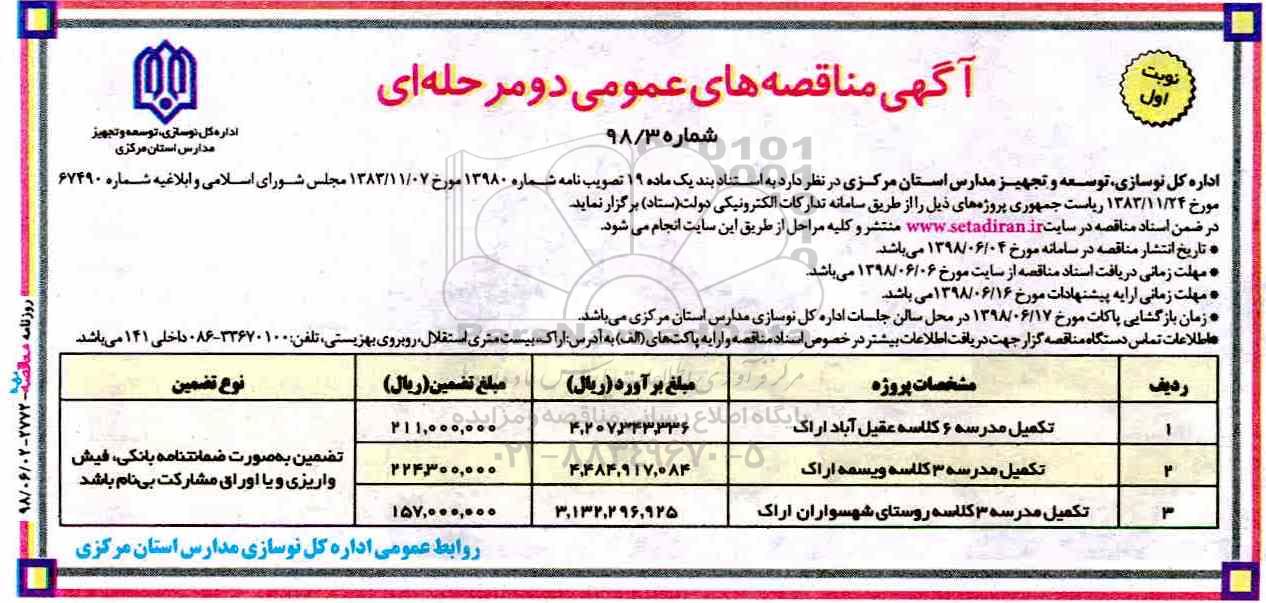 نوبت
اول
آگهی مناقصه‌های عمومی دو مرحله‌ای
شماره ۹۸/۳
اداره کل نوسازی، توسعه و تجهیز
مدارس استان مرکزی
اداره کل نوسازی، توسعه و تجهیز مدارس استان مرکزی در نظر دارد به استناد بند یک ماده ۱۹ تصویب نامه شماره ۱۳۹۸۰ مورخ ۱۳۸۳/۱۱/۰۷ مجلس شورای اسلامی و ابلاغیه شماره ۶۷۴۹۰
مورخ ۱۳۸۳/۱۱/۲۴ ریاست جمهوری پروژه‌های ذیل را از طریق سامانه تدارکات الکترونیکی دولت(ستاد) برگزار نماید.
در ضمن اسناد مناقصه در سایت www.setadiran.ir منتشر و کلیه مراحل از طریق این سایت انجام می شود.
* تاریخ انتشار مناقصه در سامانه مورخ ۱۳۹۸/۰۶/۰۴ می‌باشد.
* مهلت زمانی دریافت اسناد مناقصه از سایت مورخ ۱۳۹۸/۰۶/۰۶ می‌باشد.
* مهلت زمانی ارایه پیشنهادات مورخ ۱۳۹۸/۰۶/۱۶می باشد.
* زمان بازگشایی پاکات مورخ ۱۳۹۸/۰۶/۱۷ در محل سالن جلسات اداره کل نوسازی مدارس استان مرکزی می‌باشد.
*اطلاعات تماس دستگاه مناقصه گزار جهت دریافت اطلاعات بیشتر در خصوص اسناد مناقصه و ارایه پاکت‌های (الف) به آدرس: اراک، بیست متری استقلال، روبروی بهزیستی، تلفن: ۳۳۶۷۰۱۰۰-۰۸۶ داخلی ۱۴۱ می‌باشد.
ردیف مشخصات پروژه مبلغ برآورد (ریال) مبلغ تضمین (ریال) نوع تضمین
۱ تکمیل مدرسه ۶ کلاسه عقیل آباد اراک ۴,۲۰۷,۳۴۳,۳۳۶ ۲۱۱,۰۰۰,۰۰۰
۲ تکمیل مدرسه ۳ کلاسه ویسمه اراک ۴,۴۸۴,۹۱۷,۰۸۴ ۲۲۴,۳۰۰,۰۰۰
۳ تکمیل مدرسه ۳ کلاسه روستای شهسواران اراک ۳,۱۳۲,۲۹۶,۹۲۵ ۱۵۷,۰۰۰,۰۰۰
تضمین به‌صورت ضمانتنامه بانکی، فیش
واریزی و یا اوراق مشارکت بی‌نام باشد
روابط عمومی اداره کل نوسازی مدارس استان مرکزی
روزنامه مناقصه-۲۷۷۲-۹۸/۰۶/۰۲
ParsNamadData
پایگاه اطلاع رسانی مناقصه و مزایده
۰۲۱-۸۸۳۴۹۶۷۰-۵